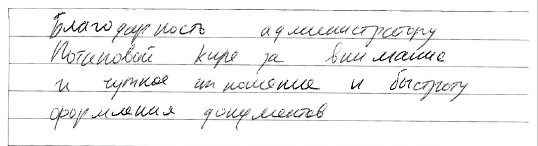 Благодарность администратору
Потаповой Кире за внимание
и чуткое отношение и быстроту
оформления документов